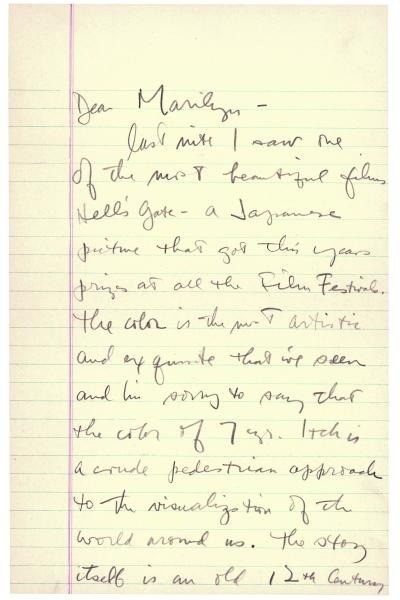 Dear Marilyn -
last nite I saw one
of the most beautiful films
Hell's Gate - a Japanese
picture that got this years
prizes at all the Film Festivals.
The color is the most artistic
and exquisite that ive seen
and Im sorry to say that
the color of 7 yr. Itch is
a crude pedestrian approach
to the visualization of the
world around us. The story
itself is an old 12th Century